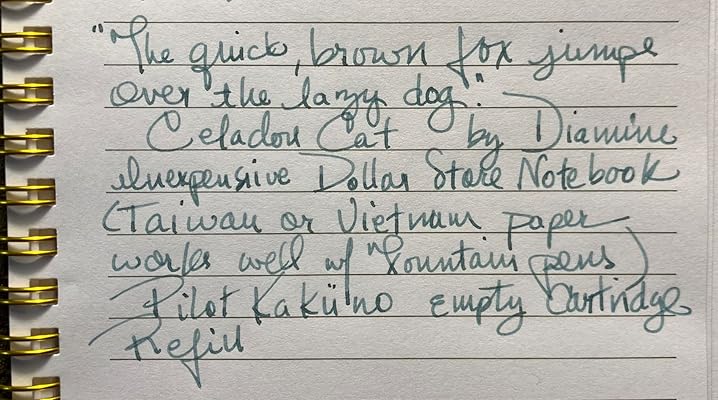 "The quick, brown fox jumps
over the lazy dog."
Celadon Cat by Diamine
Inexpensive Dollar Store Notebook
(Taiwan or Vietnam paper
works well w/ fountain pens)
Pilot Kaküno empty Cartridge
Refill